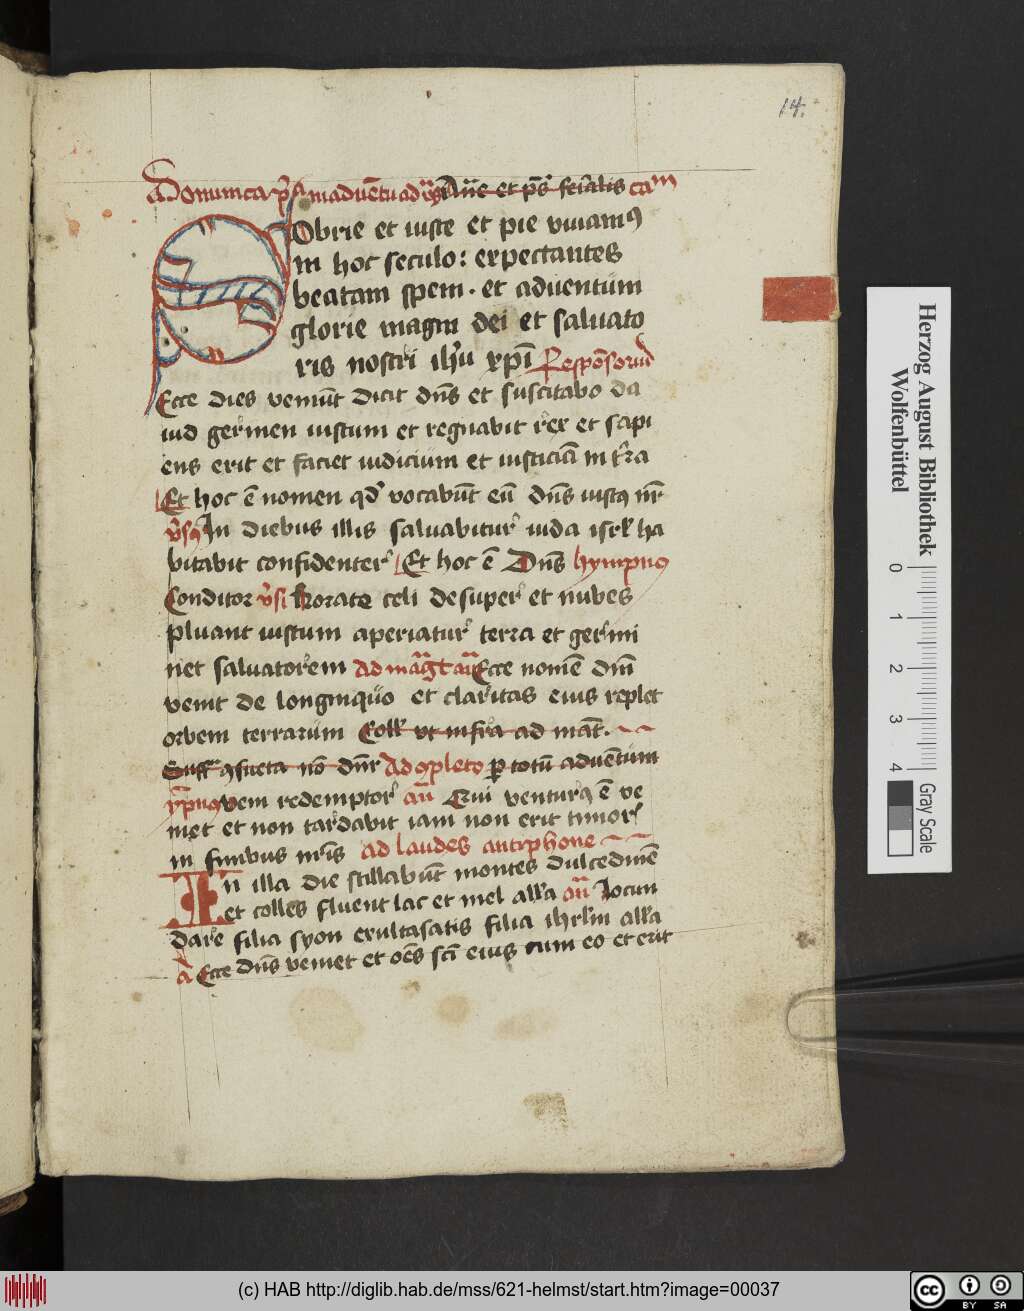 14.
Dominica p̄ma in adue͞tu ad v̄s A͞ne et p̄s ferialis ca͞m
Sobrie et iuste et pie viuamus
in hoc seculo: expectantes
beatam spem . et aduentum
glorie magni dei et saluato
ris nostri ih̄u xp̄i Respo͞soriu͞
Ecce dies veniu͞t dicit dn̄s et suscitabo da
uid germen iustum et regnabit rex et sapi
ens erit et faciet iudicium et iusticia͞ in t͛ra
Et hoc e͞ nomen qd̄ vocabu͞t eu͞ dn̄s iustꝯ nr̄
v͛sꝯ In diebus illis saluabitur iuda isrl̄ ha
bitabit confidenter Et hoc e͞ Dn̄s hympnꝯ
Conditor v͛si Rorate celi desuper et nubes
pluant iustum aperiatur terra et germi
net saluatorem Ad mag͞t an̄ Ecce nome͞ dn̄i
venit de longinquo et claritas eius replet
orbem terrarum Coll' vt infra ad mat͞.
Suff' ꝯsueta no͞ dn̄r Ad ꝯpleto p totu͞ aduentum
ympnꝯ Vem redemptor an̄ Qui venturꝯ e͞ ve
niet et non tardabit iam non erit timor
in finibus nr̄is ad laudes antiphone
In illa die stillabu͞t montes dulcedine͞
et colles fluent lac et mel all'a an̄ Iocun
dare filia syon exultasatis filia ihrl̄m all'a
a͞ Ecce dn̄s veniet et oe͞s sc̄i eius cum eo et erit
Herzog August Bibliothek
Wolfenbüttel
0 1 2 3 4
Gray Scale
(c) HAB http://diglib.hab.de/mss/621-helmst/start.htm?image=00037
cc BY SA